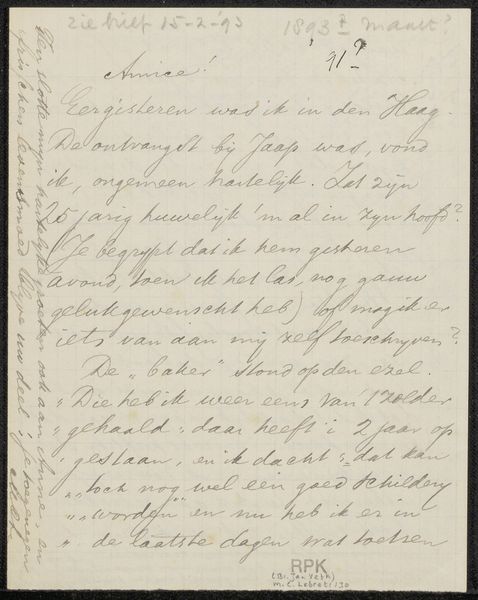 zie brief 15-2-'93
1893? maart?
'91?
Amice!
Eergisteren was ik in den Haag.
De ontvangst bij Jaap was, vond
ik, ongemeen hartelijk. Zat zijn
25 jarig huwelijk 'm al in zijn hoofd?
(Je begrypt dat ik hem gisteren
avond, toen ik het las, nog gauw
gelukgewenscht heb) of mag ik er
iets van aan mij zelf toeschryven?
De „baker" stond op den ezel.
„Die heb ik weer eens van 't zolder
„gehaald; daar heeft i 2 jaar op
„gestaan, en ik dacht: „dat kan
„„toch nog wel een goed schildery
„„worden"" en nu heb ik er in
„de laatste dagen wat toetsen
Ten slotte mijn hartelyke groeten ook aan Anna, en
frisschen levensmoed blyve uw deel! Je toegenegen
RPK
(Br. Jan Veth)
M.C. Lebret: 130